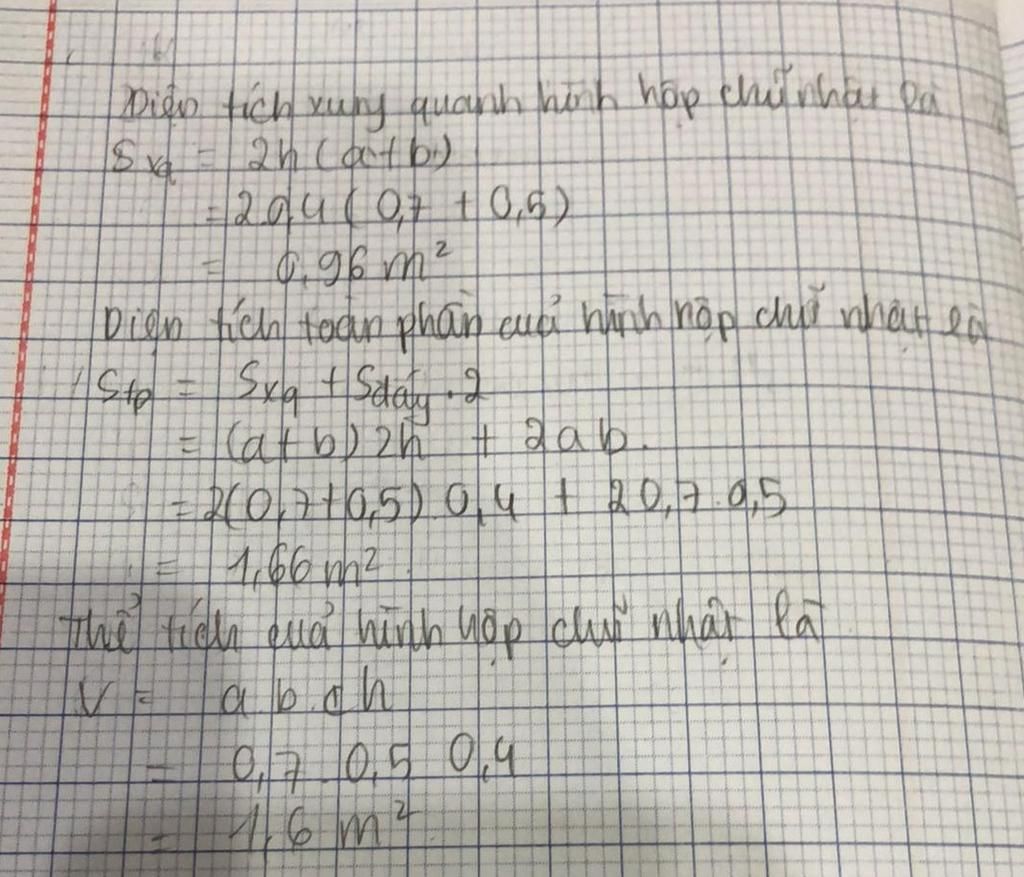 Diện tích xung quanh hình hộp chữ nhật là
Sxq = 2h (a+b)
= 2 0,4 ( 0,7 + 0,5)
= 0,96 m²
Diện tích toàn phần cuả hình hộp chữ nhật là
Stp = Sxq + Sđáy . 2
= (a+b) 2h + 2ab.
= 2(0,7+0,5) 0,4 + 2 0,7. 0,5
= 1,66 m²
Thể tích cuả hình hộp chữ nhật là
V = a b. h
= 0,7 . 0,5 0,4
= 1,6 m²